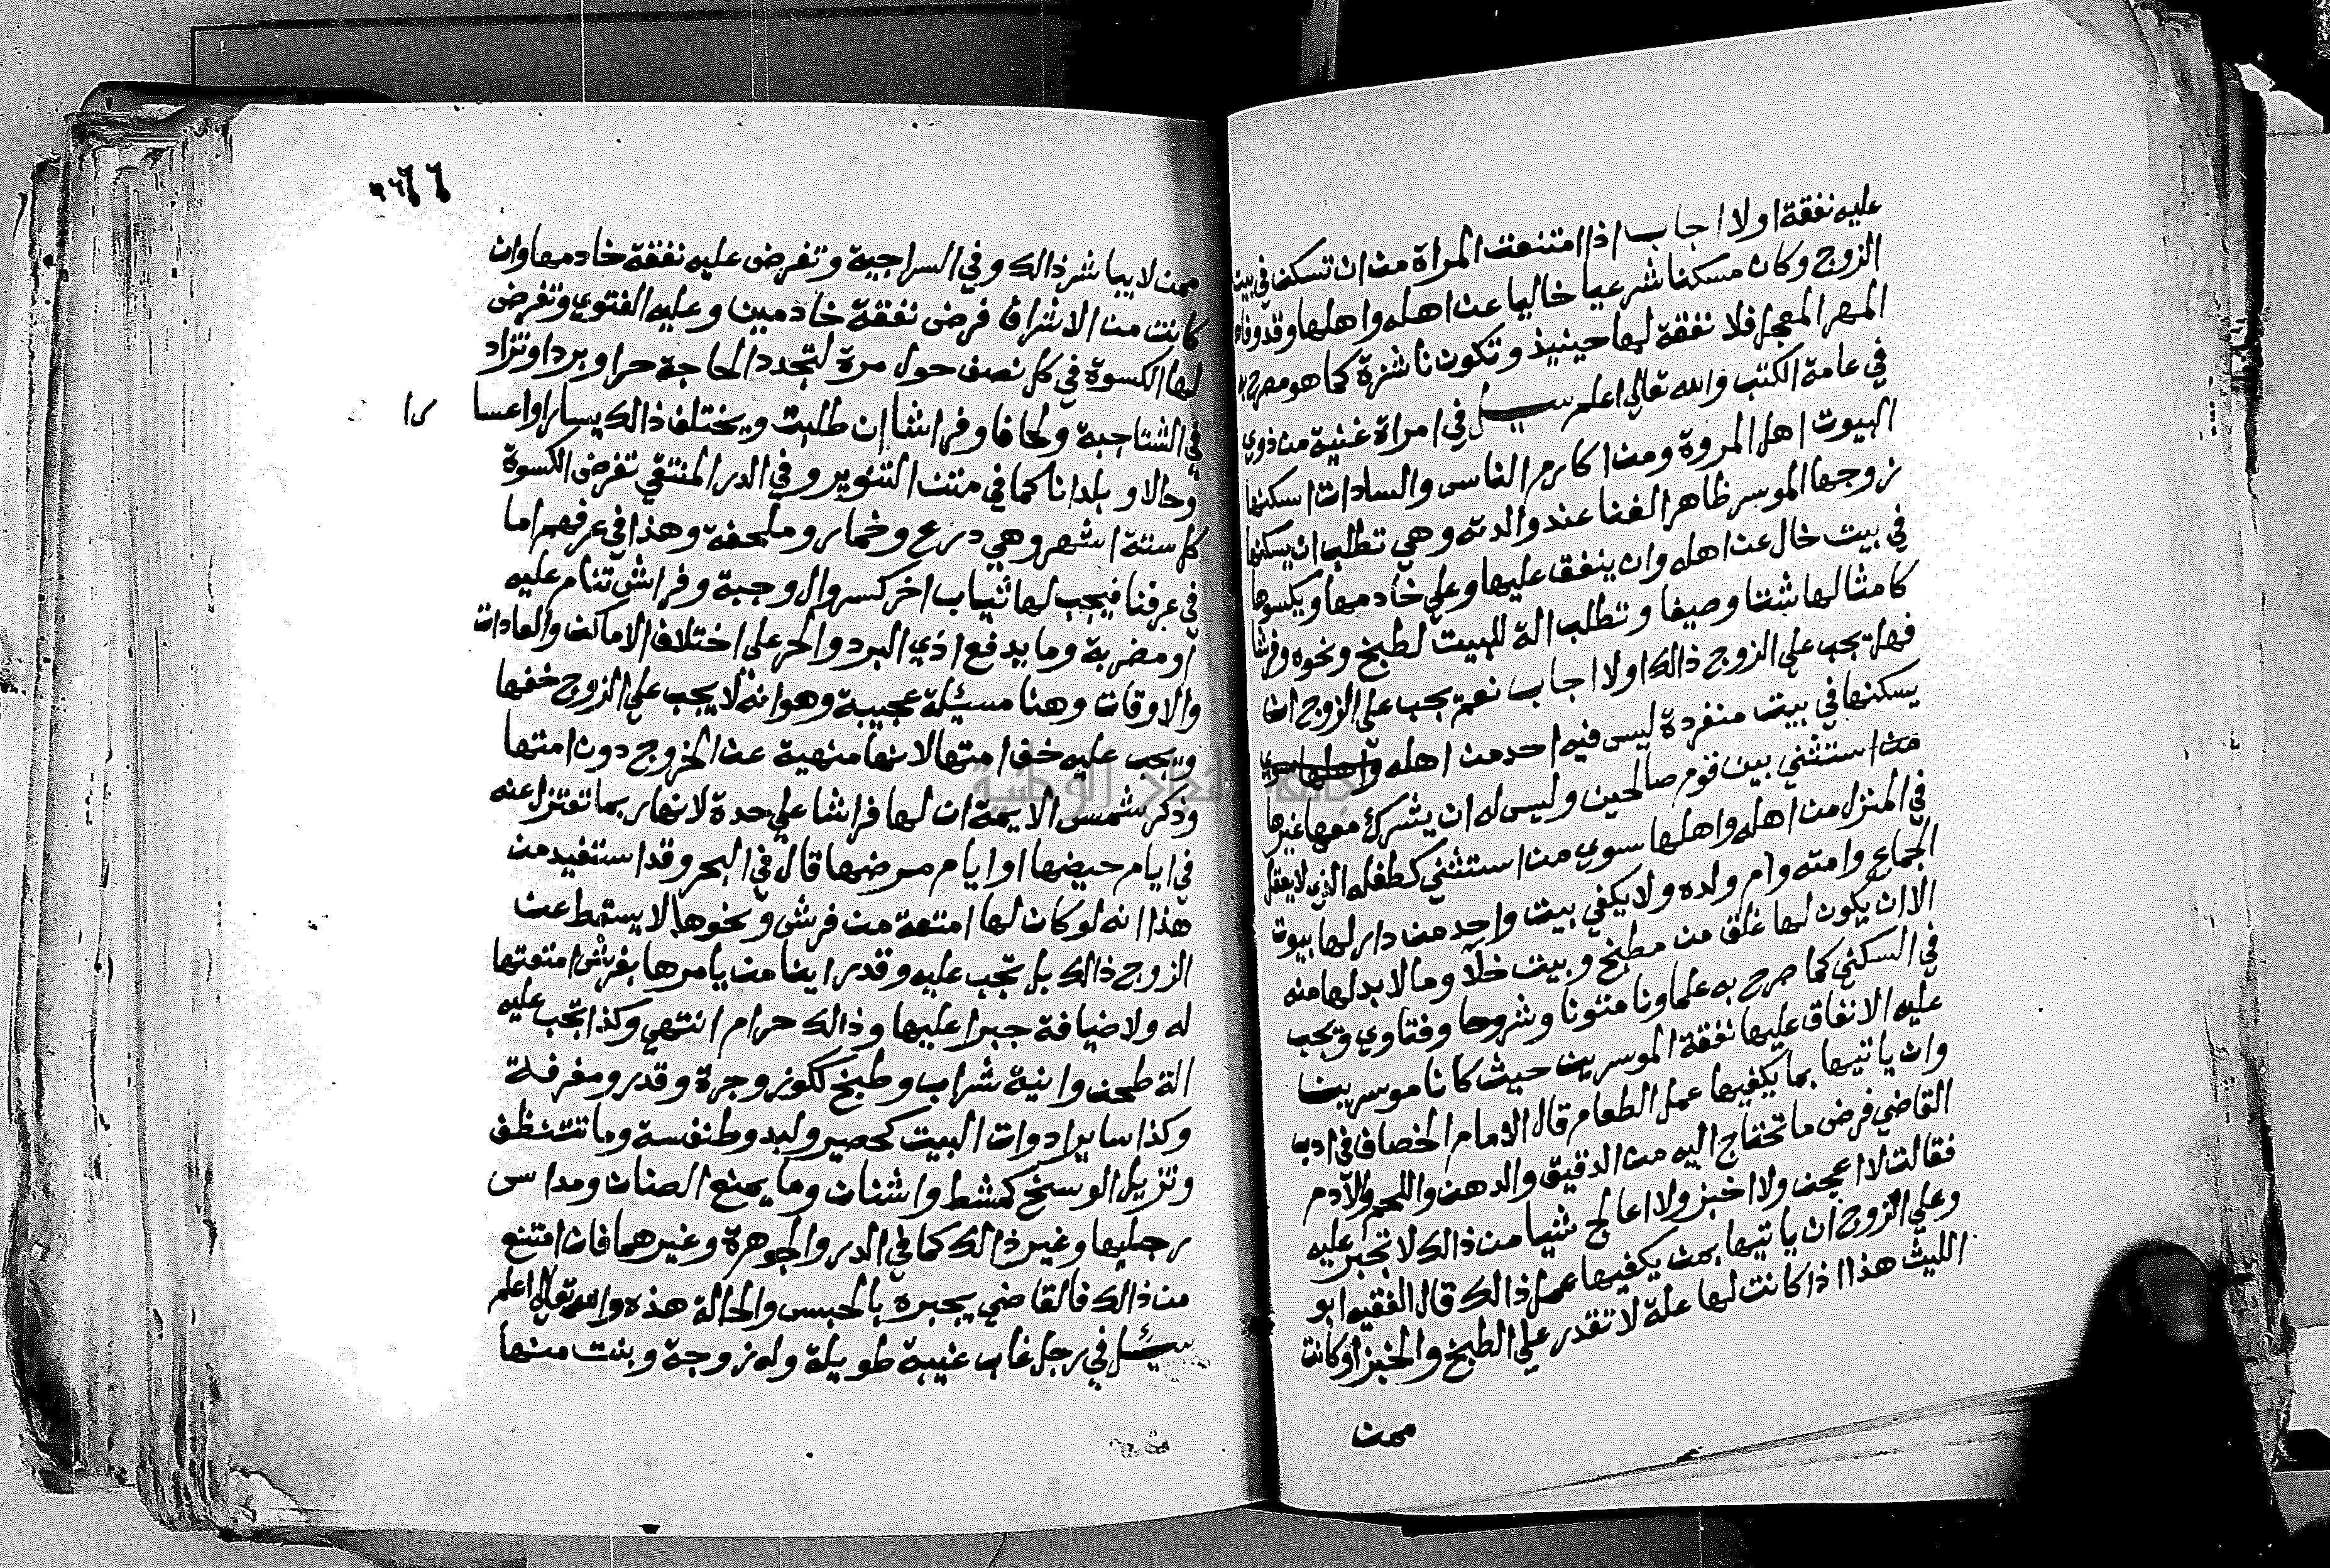 عليه نفقة اولا اجاب اذا امتنعت المراة من ان تسكن في بيت
الزوج وكان مسكنا شرعيا خاليا عن اهله واهلها وقد وفاها
المهر المعجل فلا نفقة لها حينيذ وتكون ناشزة كما هو مصرح به
في عامة الكتب والله تعالى اعلم سيل في امراة غنية من ذوي
البيوت اهل المروة ومن اكارم الناس والسادات اسكنها
زوجها الموسر ظاهر الغنا عند والدته وهي تطلب ان يسكنها
في بيت خال عن اهله وان ينفق عليها وعلي خادمها ويكسوها
كامثالها شتا وصيفا وتطلب الة للبيت لطبخ ونحوه وفرشا
فهل يجب علي الزوج ذالك اولا اجاب نعم يجب علي الزوج ان
يسكنها في بيت منفردة ليس فيه احد من اهله واهلها سوي
من استثني بين قوم صالحين وليس له ان يشرك معها غيرها
في المنزل من اهله واهلها سوي من استثني كطفله الذي لا يعقل
الجماع وامته وام ولده ولا يكفي بيت واحد من دار لها بيوت
الا ان يكون لها غلق من مطبخ وبيت خلا وما لا بد لها منه
في السكني كما صرح به علماونا متونا وشروحا وفتاوي ويجب
عليه الانفاق عليها نفقة الموسرين حيث كانا موسرين
وان ياتيها بما يكفيها عمل الطعام قال الامام الخصاف في ادب
القاضي فرض ما تحتاج اليه من الدقيق والدهن واللحم والادم
فقالت لا اعجن ولا اخبز ولا اعالج شيا من ذالك لا تجبر عليه
وعلي الزوج ان ياتيها بمن يكفيها عمل ذالك قال الفقيه ابو
الليث هذا اذا كانت لها علة لا تقدر علي الطبخ والخبز او كانت
ممن
ممن لا يباشر ذالك وفي السراجية وتفرض عليه نفقة خادمها وان
كانت من الاشراف فرض نفقة خادمين وعليه الفتوي وتفرض
لها الكسوة في كل نصف حول مرة لتجدد الحاجة حرا وبردا وتزاد
في الشتا جبة ولحافا وفراشا ان طلبت ويختلف ذالك يسارا واعسا
را
وحالا وبلدانا كما في متن التنوير وفي الدر المنتقي تفرض الكسوة
كل ستة اشهر وهي درع وخمار وملحفة وهذا في عرفهم اما
في عرفنا فيجب لها ثياب اخر كسروال وجبة وفراش تنام عليه
او مضربة وما يدفع اذي البرد والحر علي اختلاف الاماكن والعادات
والاوقات وهنا مسئلة عجيبة وهو انه لا يجب علي الزوج خفها
ويجب عليه خف امتها لانها منهية عن الخروج دون امتها
وذكر شمس الايمة ان لها فراشا علي حدة لانها ربما تعتزل عنه
في ايام حيضها او ايام مرضها قال في البحر وقد استفيد من
هذا انه لو كان لها امتعة من فرش ونحوها لا يسقط عن
الزوج ذالك بل تجب عليه وقد راينا من يامرها بفرش امتعتها
له ولاضيافة جبرا عليها وذالك حرام انتهي وكذا تجب عليه
الة طحن وانية شراب وطبخ ككوز وجرة وقدر ومغرفة
وكذا ساير ادوات البيت كحصير ولبد وطنفسة وما تتنظف
وتزيل الوسخ كمشط واشنان وما يمنع الصنان ومداس
رجليها وغير ذالك كما في الدر والجوهرة وغيرهما فان امتنع
من ذالك فالقاضي يجبره بالحبس والحالة هذه والله تعالى اعلم
سيئل في رجل غاب غيبة طويلة وله زوجة وبنت منها